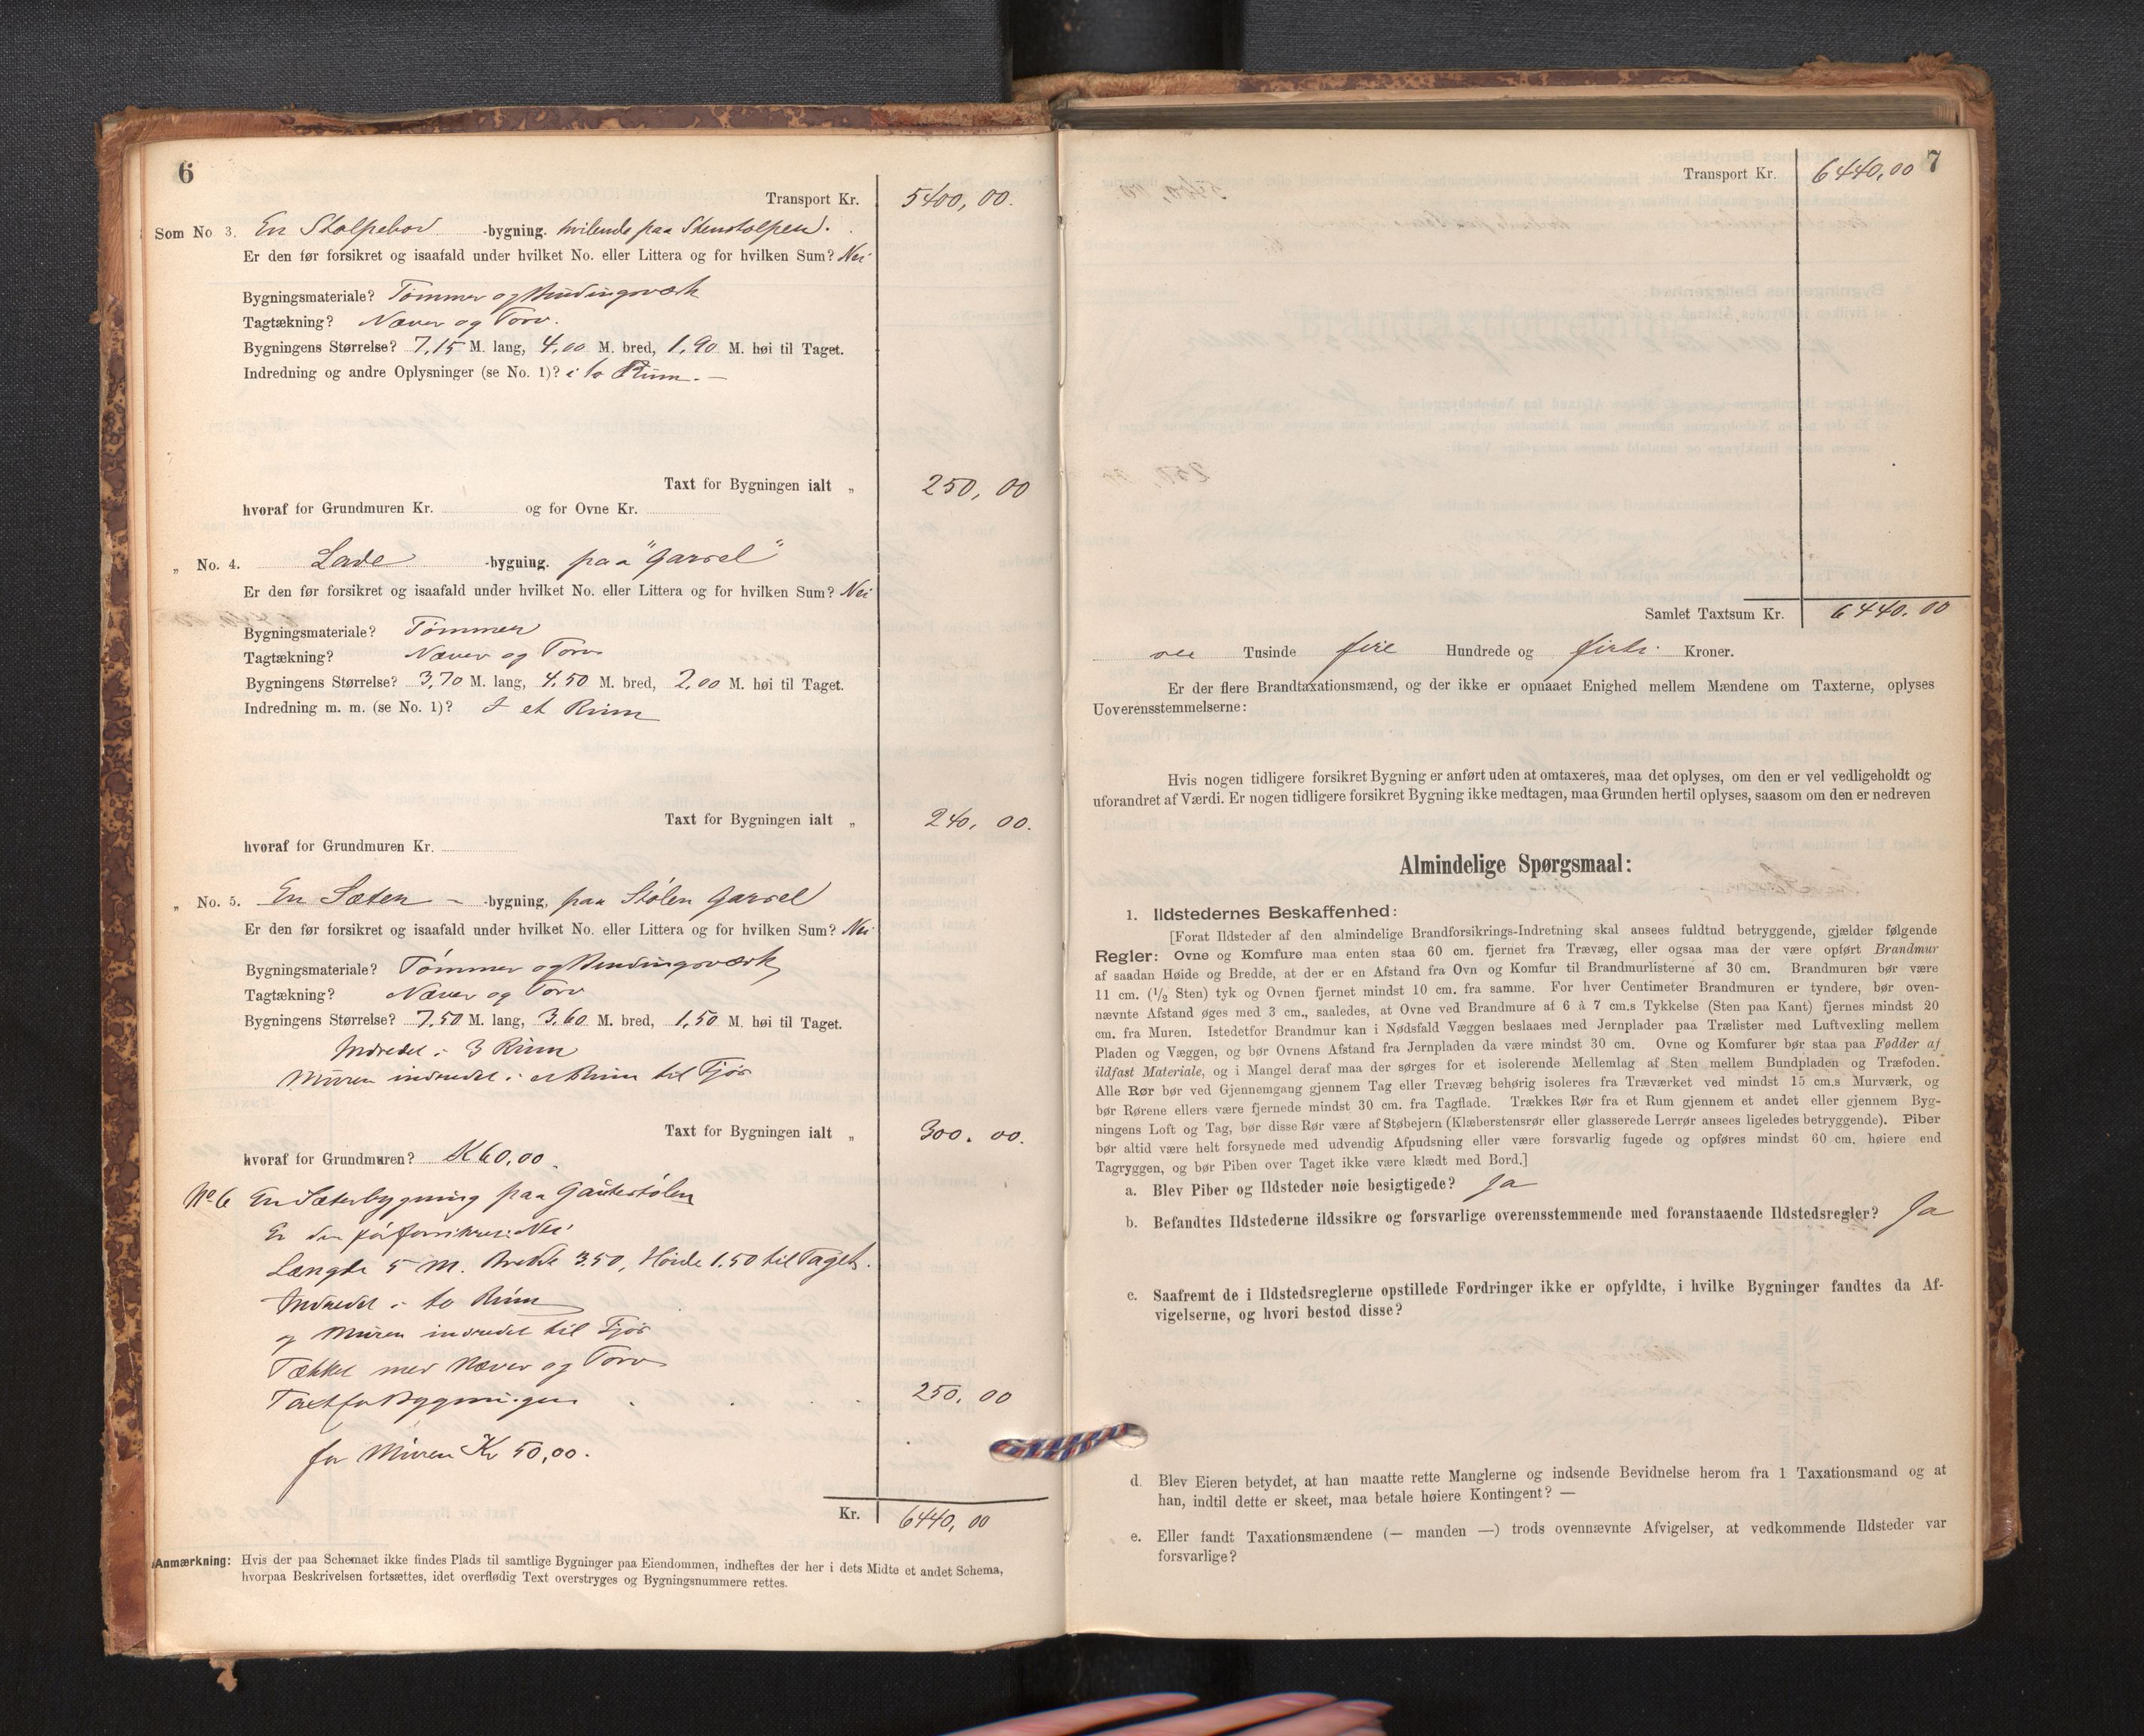 6
Transport Kr. 5400,00.
Som No 3. En Stolpebod -bygning. hvilende paa Stenstolper.
Er den før forsikret og isaafald under hvilket No. eller Littera og for hvilken Sum? Nei
Bygningsmateriale? Tømmer og Bindingsværk
Tagtækning? Næver og Torv.
Bygningens Størrelse? 7,15 M. lang, 4,00 M. bred, 1,90 M. høi til Taget.
Indredning og andre Oplysninger (se No. 1)? i to Rum. —
Taxt for Bygningen ialt „ 250,00
hvoraf for Grundmuren Kr. og for Ovne Kr.
„ No. 4. Lade -bygning. paa "Garsel"
Er den før forsikret og isaafald under hvilket No. eller Littera og for hvilken Sum? Nei
Bygningsmateriale? Tømmer
Tagtækning? Næver og Torv
Bygningens Størrelse? 3,70 M. lang, 4,50 M. bred, 2,00 M. høi til Taget.
Indredning m. m. (se No. 1)? I et Rum
Taxt for Bygningen ialt „ 240,00.
hvoraf for Grundmuren Kr.
„ No. 5. En Sæter - -bygning, paa Stølen Garsel
Er den før forsikret og isaafald under hvilket No. eller Littera og for hvilken Sum? Nei
Bygningsmateriale? Tømmer og Bindingsværk
Tagtækning? Næver og Torv
Bygningens Størrelse? 7,50 M. lang, 3,60 M. bred, 1,50 M. høi til Taget.
Indredet i 3 Rum
Muren indredet i et Rum til Fjøs
Taxt for Bygningen ialt „ 300.00.
hvoraf for Grundmuren? K 60,00.
No 6 En Sæterbygning paa Gautestølen
Er den før forsikret: Nei
Længde 5 M. Bredde 3.50, Høide 1.50 til Taget.
Indredet i to Rum
og Muren indredet til Fjøs
Tækket med Næver og Torv
Taxt for Bygningen . . . 250,00
for Muren Kr 50,00.
Kr. 6440,00
Anmærkning: Hvis der paa Schemaet ikke findes Plads til samtlige Bygninger paa Eiendommen, indheftes der her i dets Midte et andet Schema,
hvorpaa Beskrivelsen fortsættes, idet overflødig Text overstryges og Bygningsnummere rettes.
7
Transport Kr. 6440,00
Samlet Taxtsum Kr. 6440.00
Tusinde fire Hundrede og firti Kroner.
Er der flere Brandtaxationsmænd, og der ikke er opnaaet Enighed mellem Mændene om Taxterne, oplyses
Uoverensstemmelserne:
Hvis nogen tidligere forsikret Bygning er anført uden at omtaxeres, maa det oplyses, om den er vel vedligeholdt og
uforandret af Værdi. Er nogen tidligere forsikret Bygning ikke medtagen, maa Grunden hertil oplyses, saasom om den er nedreven
Almindelige Spørgsmaal:
1. Ildstedernes Beskaffenhed:
[Forat Ildsteder af den almindelige Brandforsikrings-Indretning skal ansees fuldtud betryggende, gjælder følgende
Regler: Ovne og Komfure maa enten staa 60 cm. fjernet fra Trævæg, eller ogsaa maa der være opført Brandmur
af saadan Høide og Bredde, at der er en Afstand fra Ovn og Komfur til Brandmurlisterne af 30 cm. Brandmuren bør være
11 cm. (1/2 Sten) tyk og Ovnen fjernet mindst 10 cm. fra samme. For hver Centimeter Brandmuren er tyndere, bør oven-
nævnte Afstand øges med 3 cm., saaledes, at Ovne ved Brandmure af 6 à 7 cm.s Tykkelse (Sten paa Kant) fjernes mindst 20
cm. fra Muren. Istedetfor Brandmur kan i Nødsfald Væggen beslaaes med Jernplader paa Trælister med Luftvexling mellem
Pladen og Væggen, og bør Ovnens Afstand fra Jernpladen da være mindst 30 cm. Ovne og Komfurer bør staa paa Fødder af
ildfast Materiale, og i Mangel deraf maa der sørges for et isolerende Mellemlag af Sten mellem Bundpladen og Træfoden.
Alle Rør bør ved Gjennemgang gjennem Tag eller Trævæg behørig isoleres fra Træværket ved mindst 15 cm.s Murværk, og
bør Rørene ellers være fjernede mindst 30 cm. fra Tagflade. Trækkes Rør fra et Rum gjennem et andet eller gjennem Byg-
ningens Loft og Tag, bør disse Rør være af Støbejern (Klæberstensrør eller glasserede Lerrør ansees ligeledes betryggende). Piber
bør altid være helt forsynede med udvendig Afpudsning eller være forsvarlig fugede og opføres mindst 60 cm. høiere end
Tagryggen, og bør Piben over Taget ikke være klædt med Bord.]
a. Blev Piber og Ildsteder nøie besigtigede? Ja
b. Befandtes Ildstederne ildssikre og forsvarlige overensstemmende med foranstaaende Ildstedsregler? Ja
c. Saafremt de i Ildstedsreglerne opstillede Fordringer ikke er opfyldte, i hvilke Bygninger fandtes da Af-
vigelserne, og hvori bestod disse?
d. Blev Eieren betydet, at han maatte rette Manglerne og indsende Bevidnelse herom fra 1 Taxationsmand og at
han, indtil dette er skeet, maa betale høiere Kontingent? —
e. Eller fandt Taxationsmændene (— manden —) trods ovennævnte Afvigelser, at vedkommende Ildsteder var
forsvarlige?